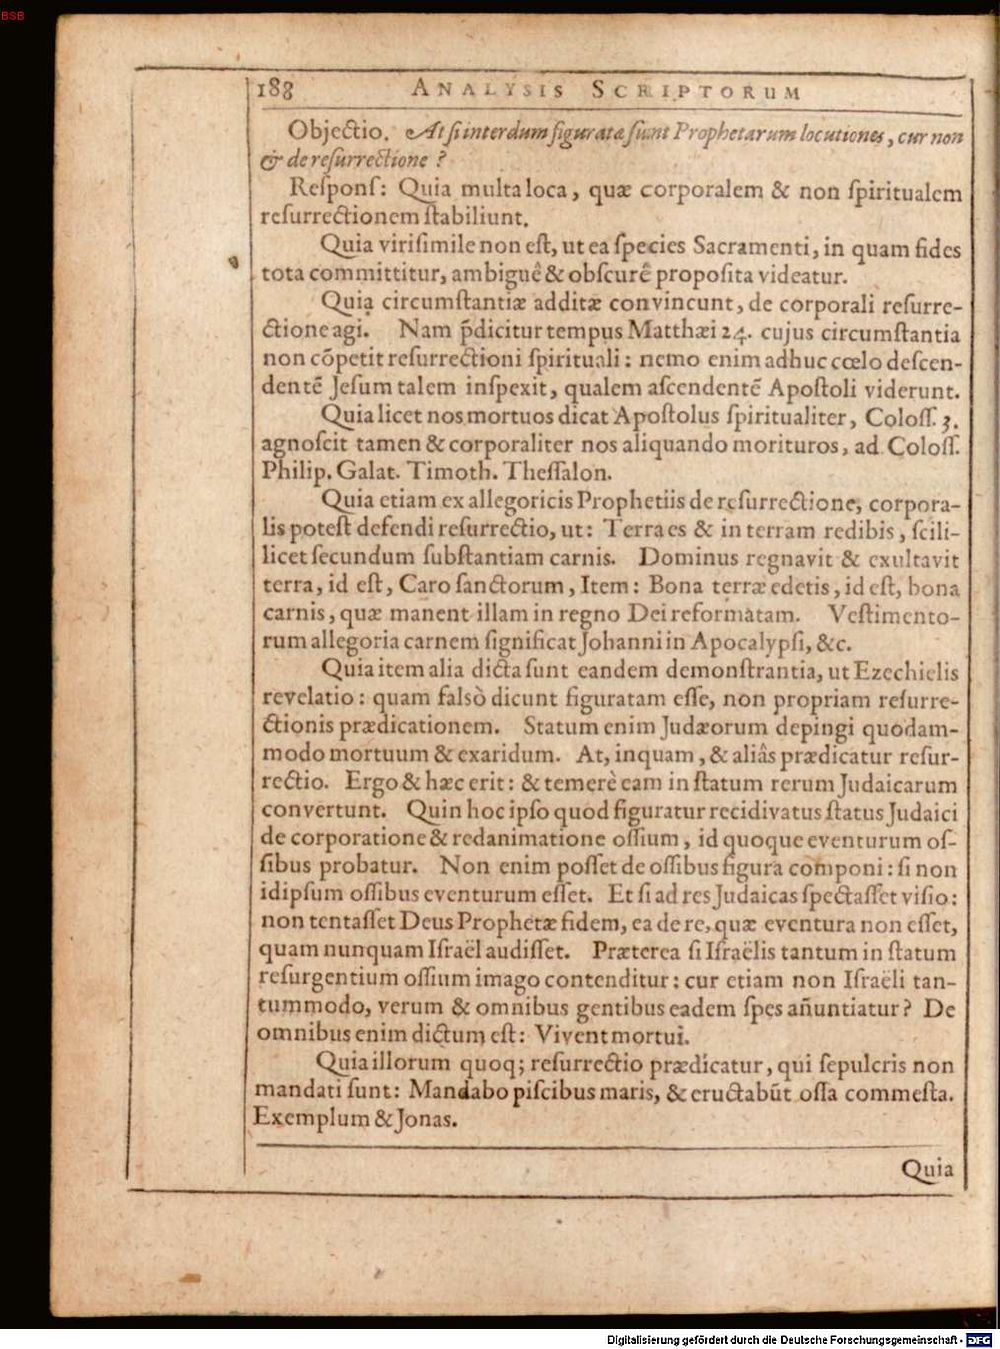 BSB
188 ANALYSIS SCRIPTORUM
Objectio. At si interdum figuratæ sunt Prophetarum locutiones, cur non
& de resurrectione ?
Respons: Quia multa loca, quæ corporalem & non spiritualem
resurrectionem stabiliunt.
Quia virisimile non est, ut ea species Sacramenti, in quam fides
tota committitur, ambiguê & obscurê proposita videatur.
Quia circumstantiæ additæ convincunt, de corporali resurre-
ctione agi. Nam p̃dicitur tempus Matthæi 24. cujus circumstantia
non cõpetit resurrectioni spirituali: nemo enim adhuc cœlo descen-
dentẽ Jesum talem inspexit, qualem ascendentẽ Apostoli viderunt.
Quia licet nos mortuos dicat Apostolus spiritualiter, Coloss. 3.
agnoscit tamen & corporaliter nos aliquando morituros, ad Coloss.
Philip. Galat. Timoth. Thessalon.
Quia etiam ex allegoricis Prophetiis de resurrectione, corpora-
lis potest defendi resurrectio, ut: Terra es & in terram redibis, scili-
licet secundum substantiam carnis. Dominus regnavit & exultavit
terra, id est, Caro sanctorum, Item: Bona terræ edetis, id est, bona
carnis, quæ manent illam in regno Dei reformatam. Vestimento-
rum allegoria carnem significat Johanni in Apocalypsi, &c.
Quia item alia dicta sunt eandem demonstrantia, ut Ezechielis
revelatio: quam falsò dicunt figuratam esse, non propriam resurre-
ctionis prædicationem. Statum enim Judæorum depingi quodam-
modo mortuum & exaridum. At, inquam, & aliâs prædicatur resur-
rectio. Ergo & hæc erit: & temerè eam in statum rerum Judaicarum
convertunt. Quin hoc ipso quod figuratur recidivatus status Judaici
de corporatione & redanimatione ossium, id quoque eventurum os-
sibus probatur. Non enim posset de ossibus figura componi: si non
idipsum ossibus eventurum esset. Et si ad res Judaicas spectasset visio:
non tentasset Deus Prophetæ fidem, ea de re, quæ eventura non esset,
quam nunquam Israël audisset. Præterea si Israëlis tantum in statum
resurgentium ossium imago contenditur: cur etiam non Israëli tan-
tummodo, verum & omnibus gentibus eadem spes añuntiatur? De
omnibus enim dictum est: Vivent mortui.
Quia illorum quoq; resurrectio prædicatur, qui sepulcris non
mandati sunt: Mandabo piscibus maris, & eructabũt ossa commesta.
Exemplum & Jonas.
Quia
Digitalisierung gefördert durch die Deutsche Forschungsgemeinschaft - DFG